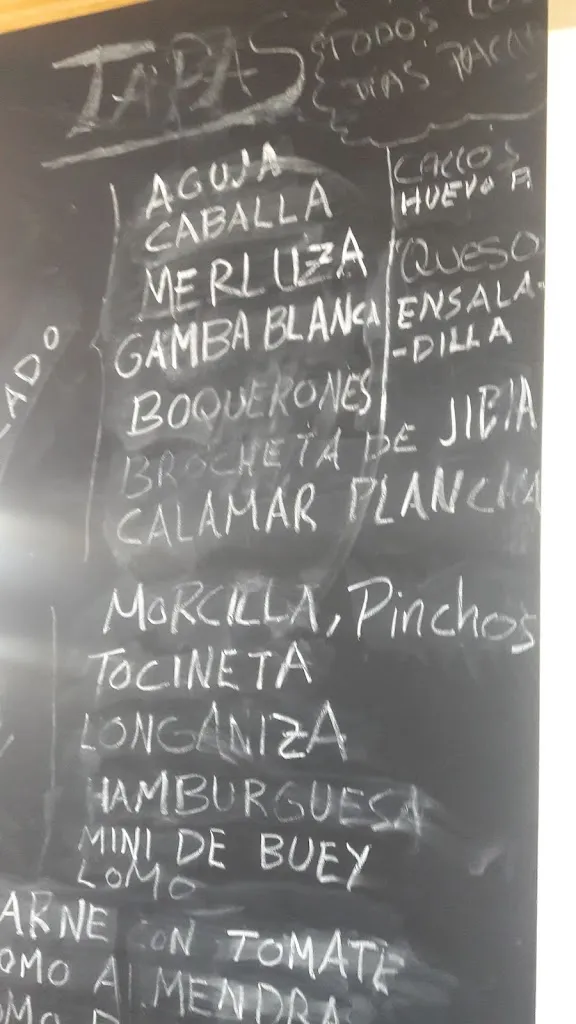 TAPAS
TODOS LO
DIAS
AGUJA
CABALLA
MERLUZA
GAMBA BLANCA
BOQUERONES
BROCHETA DE JIBIA
CALAMAR PLANCHA
CALLOS
HUEVO
QUESO
ENSALA-
-DILLA
MORCILLA, Pinchos
TOCINETA
LONGANIZA
HAMBURGUESA
MINI DE BUEY
LOMO
ARNE CON TOMATE
OMO ALMENDRA
OMO
LADO